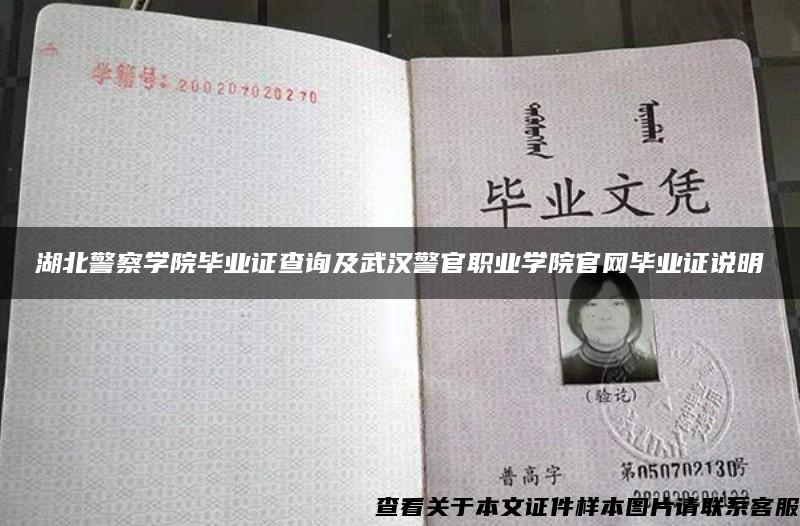 学籍号：200207020270
毕业文凭
湖北警察学院毕业证查询及武汉警官职业学院官网毕业证说明
(验讫)
普高字
第050702130号
查看关于本文证件样本图片请联系客服